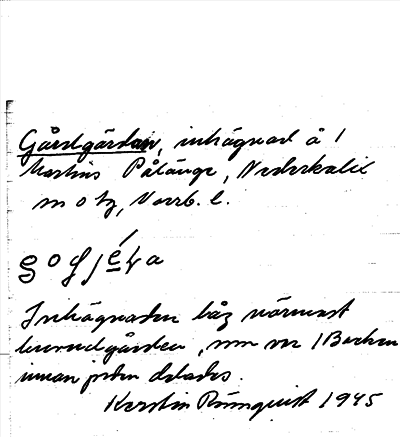 Gårdgärdan, inhägnad å 1
Martins Pålänge, Nederkalix
sn o tg, Norrb. l.
Inhägnaden låg närmast
huvudgården, som var 1
innan jorden delades.
Kerstin Rönnquist 1945